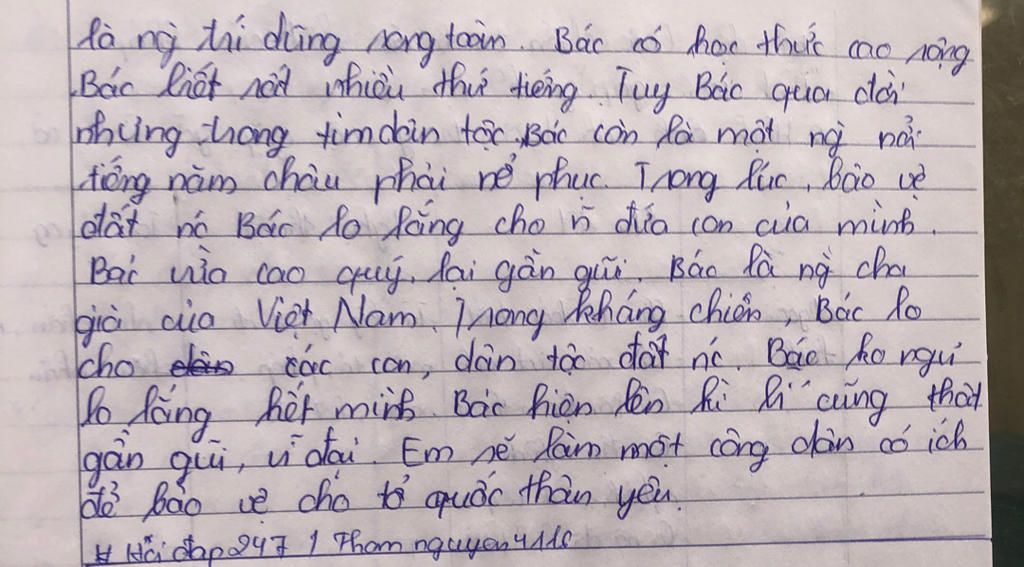 là ng` trí dũng song toàn. Bác có học thức cao rộng
Bác biết rất nhiều thứ tiếng. Tuy Bác qua đời
nhưng trong tim dân tộc, Bác còn là một ng` nổi
tiếng năm châu phải nể phục. Trong lúc, bảo vệ
đất nc Bác lo lắng cho n~ đứa con của mình.
Bác vừa cao quý, lại gần gũi. Bác là ng` cha
già của Việt Nam. Trong kháng chiến, Bác lo
cho các con, dân tộc đất nc. Bác ko ngủ
lo lắng hết mình. Bác hiện lên kì lí cũng thật
gần gũi, vĩ đại. Em sẽ làm một công dân có ích
để bảo vệ cho tổ quốc thân yêu.
# Hỏi đap 247 / Tham nguyen